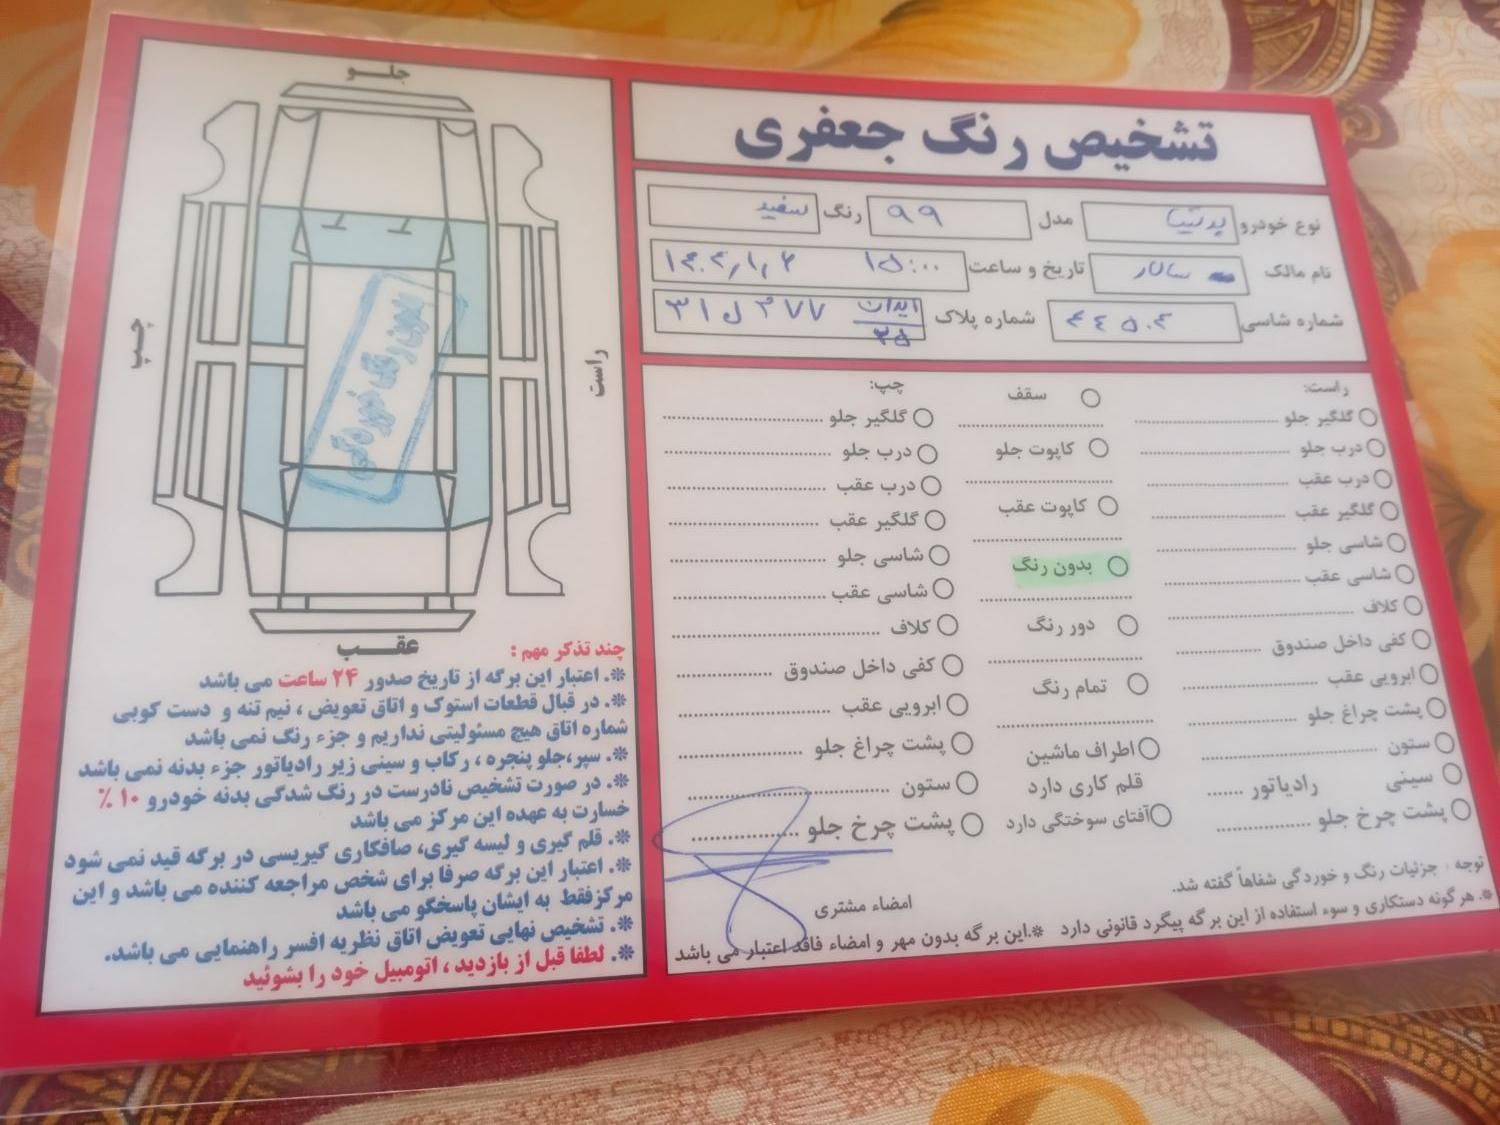 تشخیص رنگ جعفری
نوع خودرو
مدل ۹۹ رنگ سفید
نام مالک سالار تاریخ و ساعت ۱۵:۰۰
شماره شاسی ۴۴۵۰۴ شماره پلاک ۳۱ ل ۳۷۷ ایران ۲۵
راست:
گلگیر جلو
درب جلو
درب عقب
گلگیر عقب
شاسی جلو
شاسی عقب
کلاف
کفی داخل صندوق
ابرویی عقب
پشت چراغ جلو
ستون
سینی رادیاتور
پشت چرخ جلو
سقف
کاپوت جلو
کاپوت عقب
بدون رنگ
دور رنگ
تمام رنگ
اطراف ماشین
قلم کاری دارد
آفتای سوختگی دارد
چپ:
گلگیر جلو
درب جلو
درب عقب
گلگیر عقب
شاسی جلو
شاسی عقب
کلاف
کفی داخل صندوق
ابرویی عقب
پشت چراغ جلو
ستون
پشت چرخ جلو
توجه : جزئیات رنگ و خوردگی شفاهاً گفته شد.
امضاء مشتری
*. هر گونه دستکاری و سوء استفاده از این برگه پیگرد قانونی دارد *.این برگه بدون مهر و امضاء فاقد اعتبار می باشد
جلــو
چپ
راست
بدون رنگ خورده گی
عقــب
چند تذکر مهم :
*. اعتبار این برگه از تاریخ صدور ۲۴ ساعت می باشد
*. در قبال قطعات استوک و اتاق تعویض ، نیم تنه و دست کوبی
شماره اتاق هیچ مسئولیتی نداریم و جزء رنگ نمی باشد
*. سپر،جلو پنجره ، رکاب و سینی زیر رادیاتور جزء بدنه نمی باشد
*. در صورت تشخیص نادرست در رنگ شدگی بدنه خودرو ۱۰ ٪
خسارت به عهده این مرکز می باشد
*. قلم گیری و لیسه گیری، صافکاری گیریسی در برگه قید نمی شود
*. اعتبار این برگه صرفا برای شخص مراجعه کننده می باشد و این
مرکزفقط به ایشان پاسخگو می باشد
*. تشخیص نهایی تعویض اتاق نظریه افسر راهنمایی می باشد.
*. لطفا قبل از بازدید ، اتومبیل خود را بشوئید